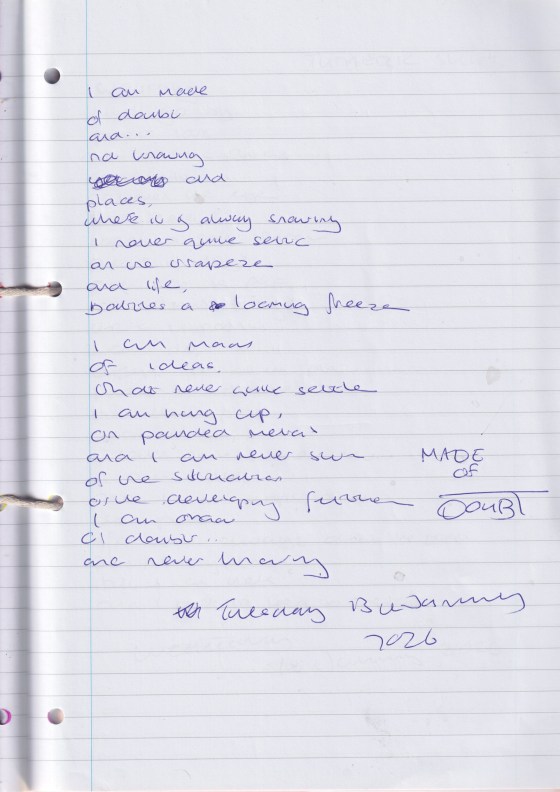 I am made
of doubt
and...
not knowing
and
places,
where it is always snowing
I never quite settle
on the trapeze
and life,
battles a looming freeze
I am made
of ideas,
that never quite settle
I am hung up,
on pounded metal
and I am never sure
of the situation
or the developing future
I am made
of doubt..
and never knowing
MADE
OF
DOUBT
Tuesday 13th January
2026